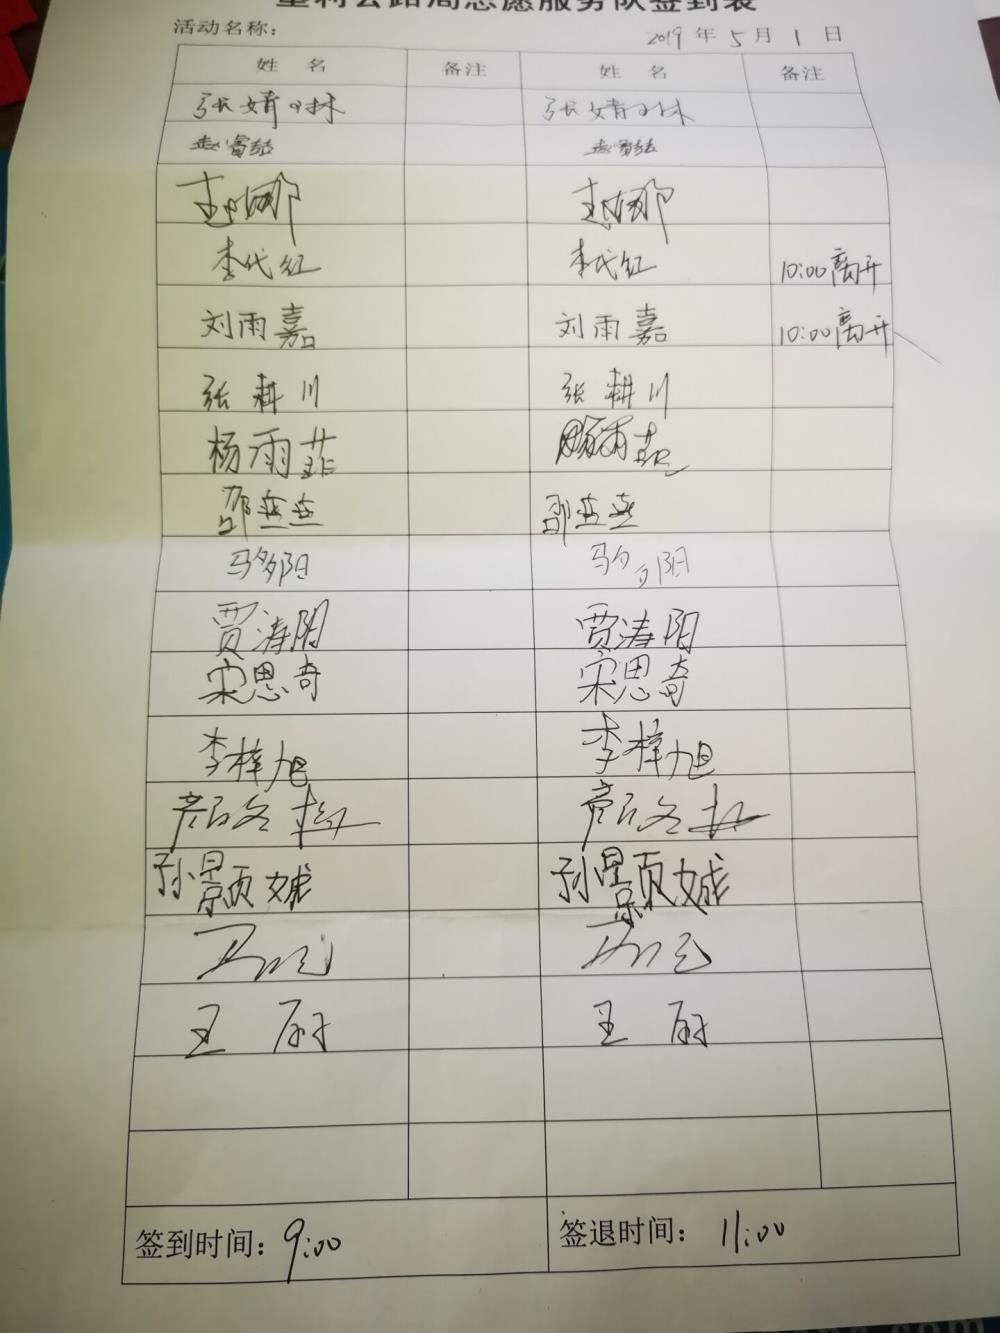 垦利公路局志愿服务队签到表
活动名称： 2019 年 5 月 1 日
姓 名 备注 姓 名 备注
张婧琳 张婧琳
赵 赵
赵娜 赵娜
李代红 李代红 10:00离开
刘雨嘉 刘雨嘉 10:00离开
张耕川 张耕川
杨雨菲 杨雨菲
邵燕燕 邵燕燕
马多阳 马多阳
贾涛阳 贾涛阳
宋思奇 宋思奇
李梓旭 李梓旭
颜冬 颜冬
孙景颇斌 孙景颇斌
王 尉 王 尉
签到时间：9:00 签退时间：11:00